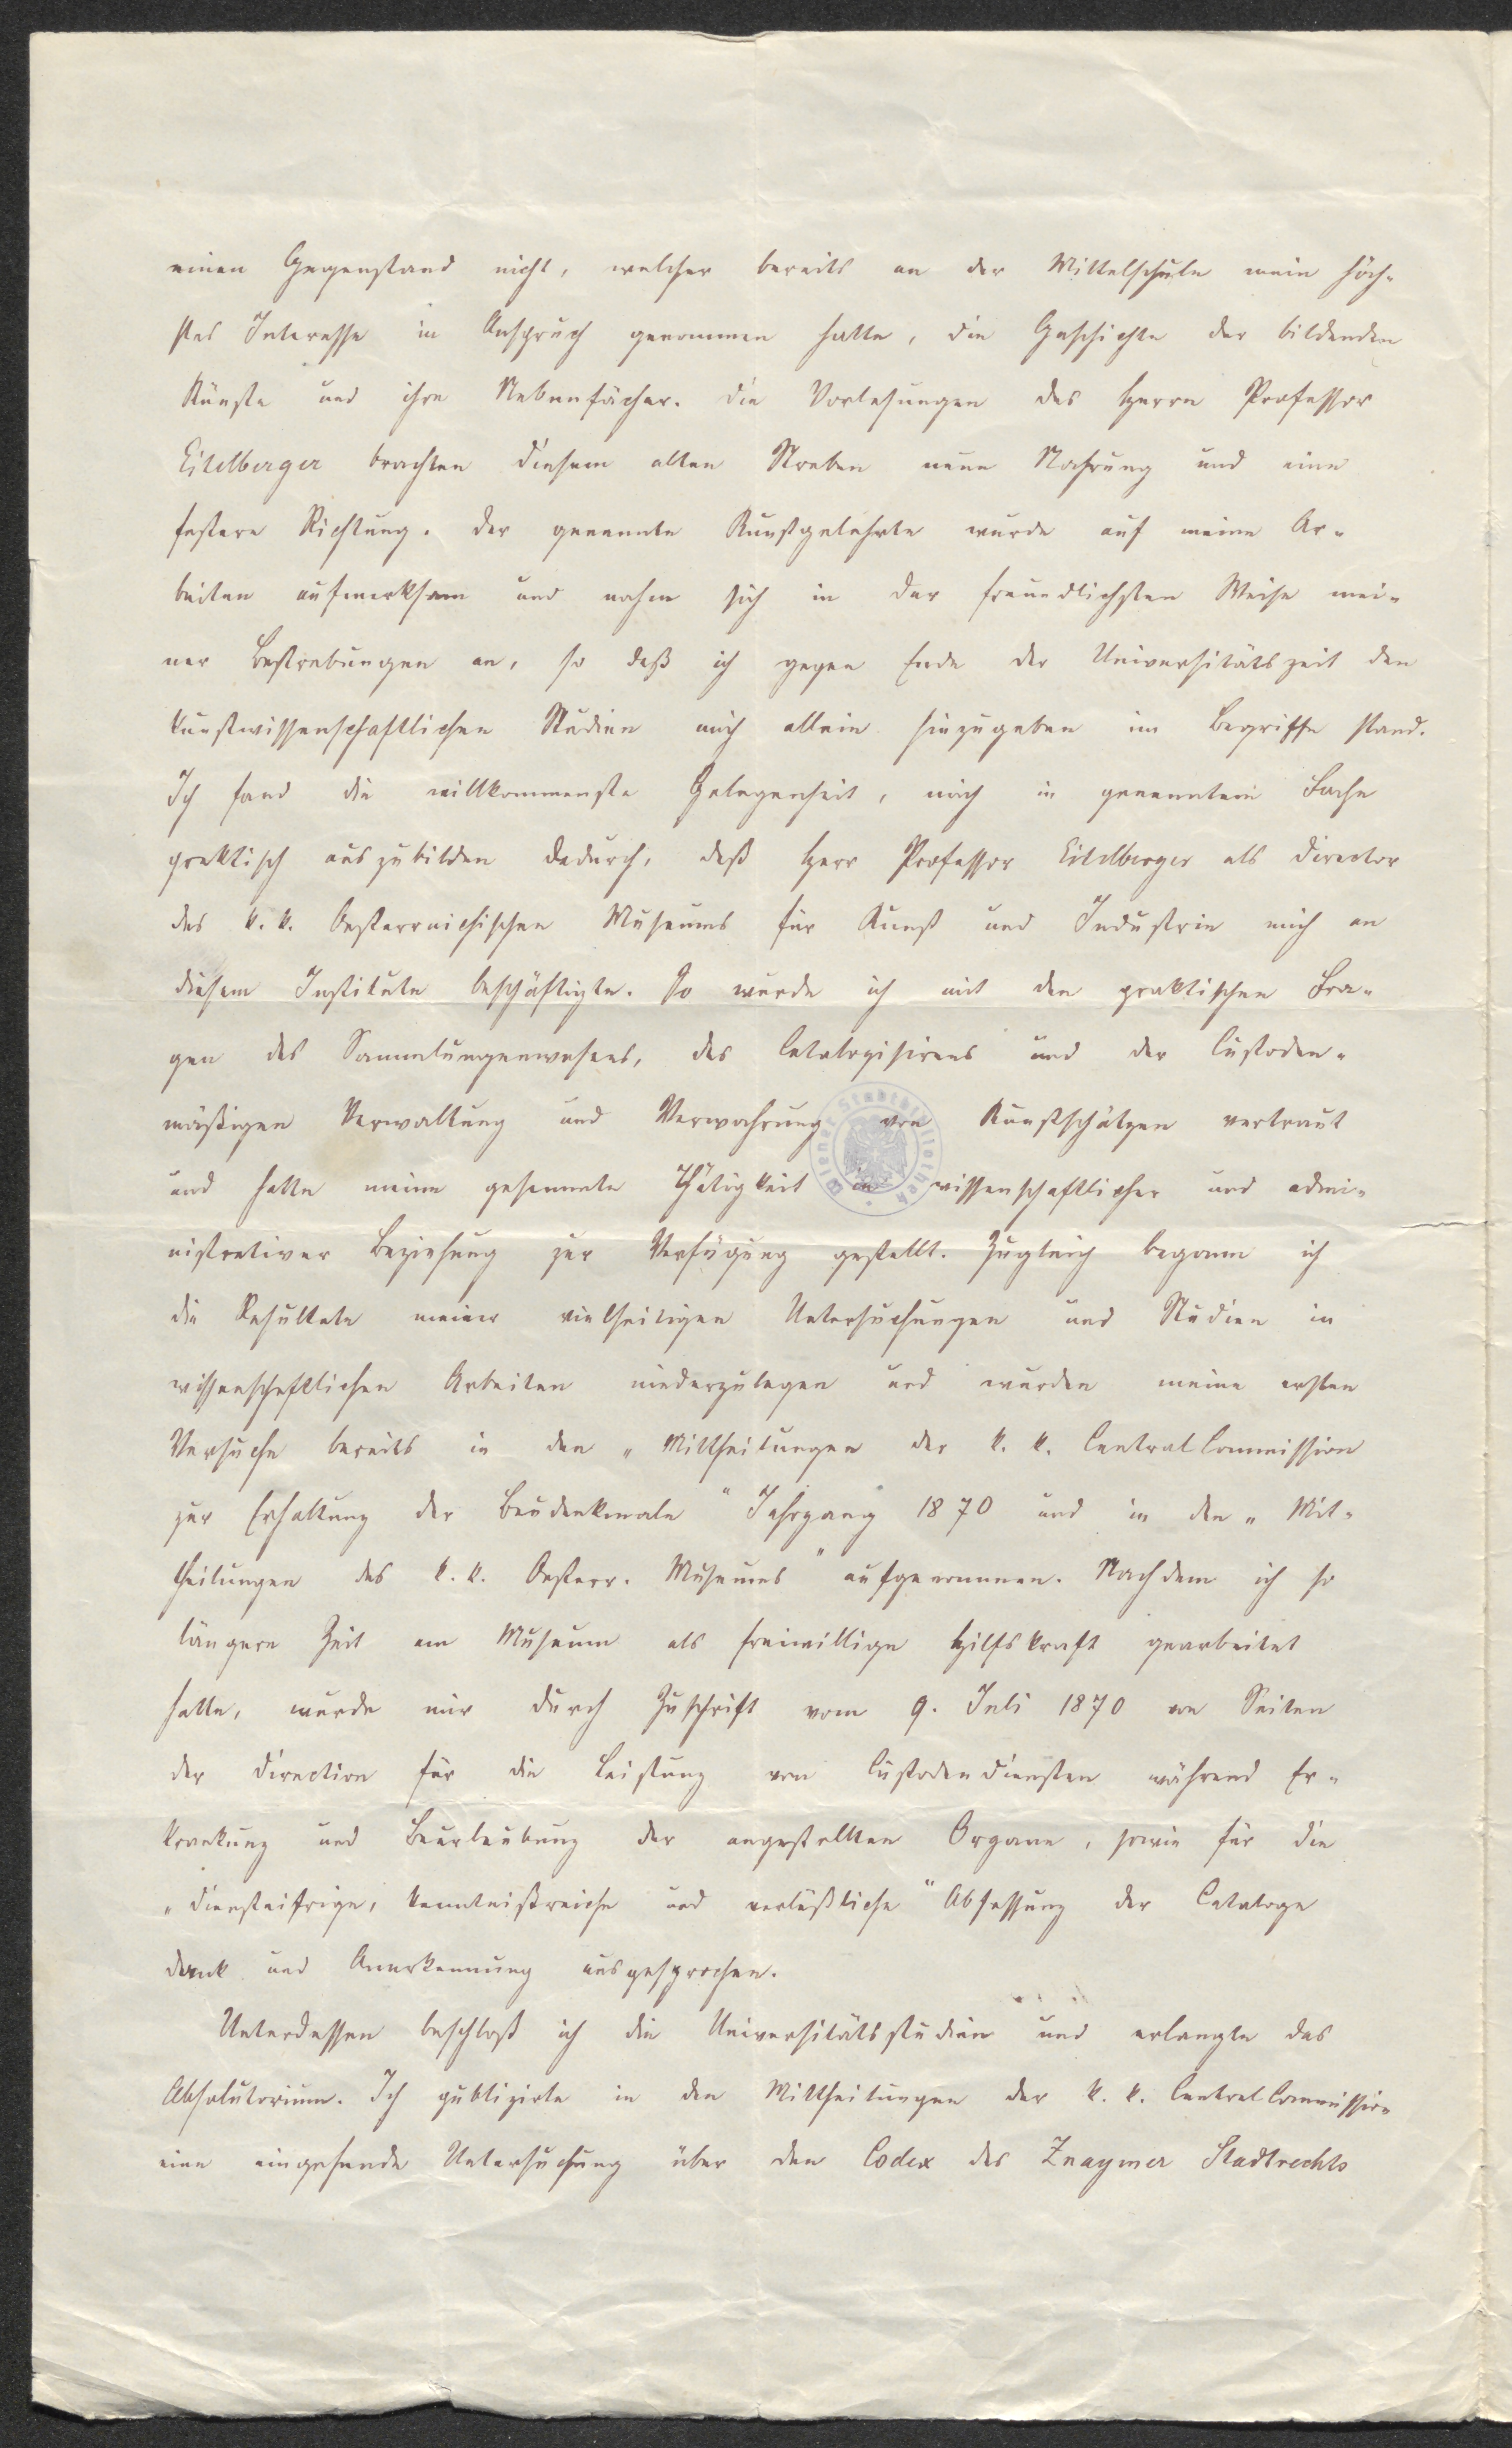 einen Gegenstand nicht, welcher bereits an der Mittelschule mein höch-
stes Interesse in Anspruch genommen hatte, die Geschichte der bildenden
Künste und ihre Nebenfächer. Die Vorlesungen des Herrn Professor
Eitelberger brachten diesem alten Streben neue Nahrung und eine
festere Richtung. Der genannte Kunstgelehrte wurde auf meine Ar-
beiten aufmerksam und nahm sich in der freundlichsten Weise mei-
ner Bestrebungen an, so daß ich gegen Ende der Universitätszeit den
kunstwissenschaftlichen Studien mich allein hinzugeben im Begriffe stand.
Ich fand die willkommenste Gelegenheit, mich in genanntem Fache
praktisch auszubilden dadurch, daß Herr Professor Eitelberger als Director
des k. k. Oesterreichischen Museums für Kunst und Industrie mich an
diesem Institute beschäftigte. So wurde ich mit den praktischen Fra-
gen des Sammlungenwesens, des Catalogisirens und der Custoden-
mäßigen Verwaltung und Verwahrung von Kunstschätzen vertraut
und hatte meine gesammte Thätigkeit in wissenschaftlicher und admi-
nistrativer Beziehung zur Verfügung gestellt. Zugleich begann ich
die Resultate meiner vielseitigen Untersuchungen und Studien in
wissenschaftlichen Arbeiten niederzulegen und wurden meine ersten
Versuche bereits in den „Mittheilungen der k. k. Central Commission
zur Erhaltung der Baudenkmale" Jahrgang 1870 und in den „Mit-
theilungen des k. k. Oesterr. Museums" aufgenommen. Nachdem ich so
längere Zeit am Museum als freiwillige Hilfskraft gearbeitet
hatte, wurde mir durch Zuschrift vom 9. Juli 1870 von Seiten
der Direction für die Leistung von Custodendiensten während Er-
krankung und Beurlaubung der angestellten Organe, sowie für die
„diensteifrige, kenntnißreiche und verläßliche" Abfassung der Cataloge
Dank und Anerkennung ausgesprochen.
Unterdessen beschloß ich die Universitätsstudien und erlangte das
Absolutorium. Ich publizirte in den Mittheilungen der k. k. Central Commission
eine eingehende Untersuchung über den Codex des Znaymer Stadtrechts
Wiener Stadtbibliothek